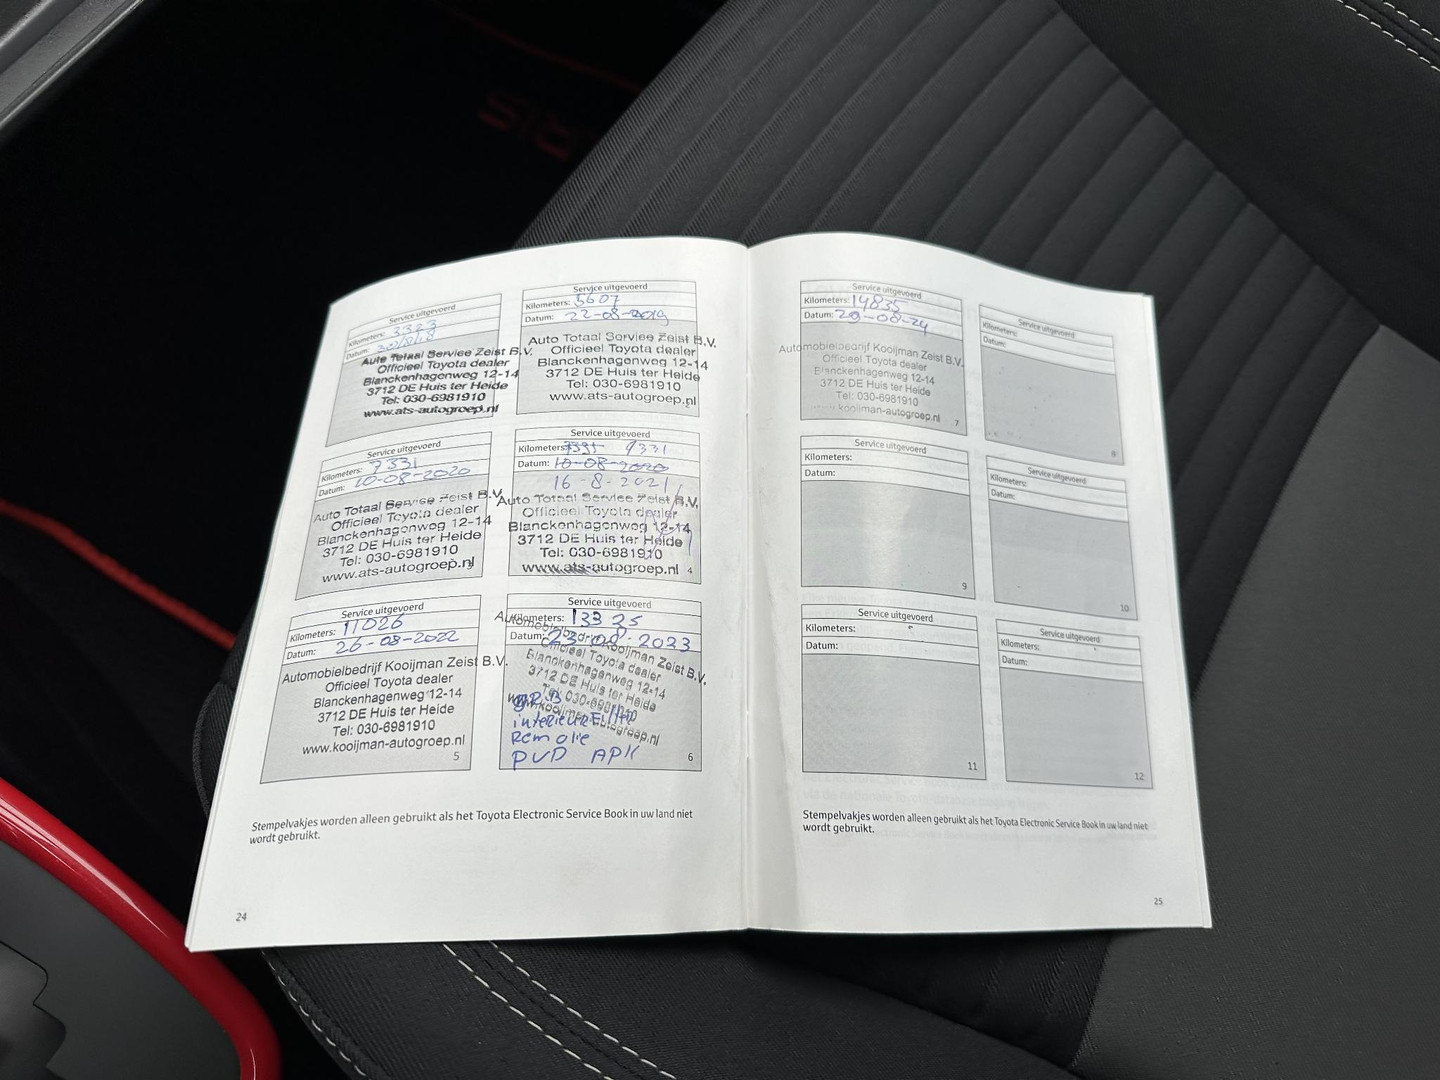 Service uitgevoerd
Kilometers: 3323
Datum: 30/8/18
Auto Totaal Service Zeist B.V.
Officieel Toyota dealer
Blanckenhagenweg 12-14
3712 DE Huis ter Heide
Tel: 030-6981910
www.ats-autogroep.nl
Service uitgevoerd
Kilometers: 5607
Datum: 22-08-2019
Auto Totaal Service Zeist B.V.
Officieel Toyota dealer
Blanckenhagenweg 12-14
3712 DE Huis ter Heide
Tel: 030-6981910
www.ats-autogroep.nl
2
Service uitgevoerd
Kilometers: 7331
Datum: 10-08-2020
Auto Totaal Service Zeist B.V.
Officieel Toyota dealer
Blanckenhagenweg 12-14
3712 DE Huis ter Heide
Tel: 030-6981910
www.ats-autogroep.nl
Service uitgevoerd
Kilometers: 9331
Datum: 10-08-2020
16-8-2021
Auto Totaal Service Zeist B.V.
Officieel Toyota dealer
Blanckenhagenweg 12-14
3712 DE Huis ter Heide
Tel: 030-6981910
www.ats-autogroep.nl
4
Service uitgevoerd
Kilometers: 11026
Datum: 26-08-2022
Automobielbedrijf Kooijman Zeist B.V.
Officieel Toyota dealer
Blanckenhagenweg 12-14
3712 DE Huis ter Heide
Tel: 030-6981910
www.kooijman-autogroep.nl
5
Service uitgevoerd
Kilometers: 13325
Datum: 23-08-2023
Automobielbedrijf Kooijman Zeist B.V.
Officieel Toyota dealer
Blanckenhagenweg 12-14
3712 DE Huis ter Heide
Tel: 030-6981910
www.kooijman-autogroep.nl
interieurfilter
Remolie
PVD APK
6
Stempelvakjes worden alleen gebruikt als het Toyota Electronic Service Book in uw land niet
wordt gebruikt.
24
Service uitgevoerd
Kilometers: 14835
Datum: 29-08-24
Automobielbedrijf Kooijman Zeist B.V.
Officieel Toyota dealer
Blanckenhagenweg 12-14
3712 DE Huis ter Heide
Tel: 030-6981910
www.kooijman-autogroep.nl
7
Service uitgevoerd
Kilometers:
Datum:
8
Service uitgevoerd
Kilometers:
Datum:
9
Service uitgevoerd
Kilometers:
Datum:
10
Service uitgevoerd
Kilometers:
Datum:
11
Service uitgevoerd
Kilometers:
Datum:
12
Stempelvakjes worden alleen gebruikt als het Toyota Electronic Service Book in uw land niet
wordt gebruikt.
25